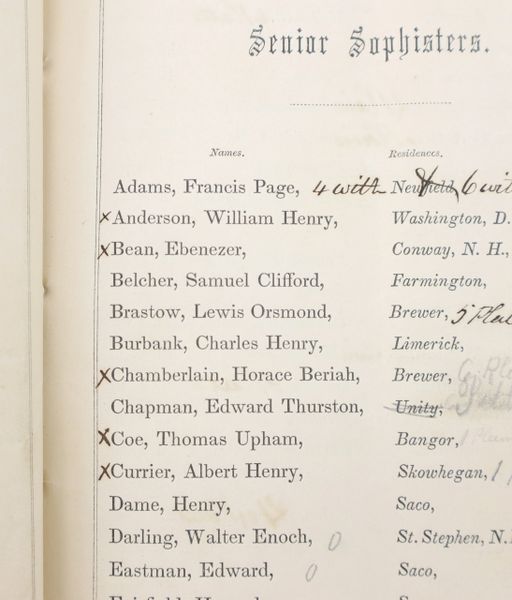 Senior Sophisters.
Names. Residences.
Adams, Francis Page, 4 with Newfield, 6
x Anderson, William Henry, Washington, D.
x Bean, Ebenezer, Conway, N. H.,
Belcher, Samuel Clifford, Farmington,
Brastow, Lewis Orsmond, Brewer, 5
Burbank, Charles Henry, Limerick,
x Chamberlain, Horace Beriah, Brewer,
Chapman, Edward Thurston, Unity,
x Coe, Thomas Upham, Bangor,
x Currier, Albert Henry, Skowhegan,
Dame, Henry, Saco,
Darling, Walter Enoch, 0 St. Stephen, N.
Eastman, Edward, 0 Saco,